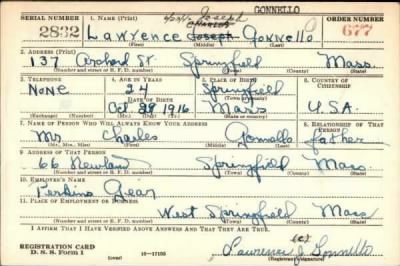 GONNELLO
SERIAL NUMBER 1. NAME (Print) Joseph ORDER NUMBER
CHARLES
2832 Lawrence Joseph Gonnello 677
(First) (Middle) (Last)
2. ADDRESS (Print)
137 Orchard St. Springfield Mass
(Number and street or R. F. D. number) (Town) (County) (State)
3. TELEPHONE 4. AGE IN YEARS 5. PLACE OF BIRTH 6. COUNTRY OF CITIZENSHIP
None 24 Springfield
DATE OF BIRTH (Town or county)
Oct 1916 Mass U.S.A.
(Exchange) (Number) (Mo.) (Day) (Yr.) (State or country)
7. NAME OF PERSON WHO WILL ALWAYS KNOW YOUR ADDRESS 8. RELATIONSHIP OF THAT PERSON
Mr Charles Gonnello father
(Mr., Mrs., Miss) (First) (Middle) (Last)
9. ADDRESS OF THAT PERSON
66 Springfield Mass
(Number and street or R. F. D. number) (Town) (County) (State)
10. EMPLOYER'S NAME
Perkins Gear
11. PLACE OF EMPLOYMENT OR BUSINESS
West Springfield Mass
(Number and street or R. F. D. number) (Town) (County) (State)
I AFFIRM THAT I HAVE VERIFIED ABOVE ANSWERS AND THAT THEY ARE TRUE.
REGISTRATION CARD
D. S. S. Form 1 (over) 16—17105 Lawrence J. Gonnello
(Registrant's signature)